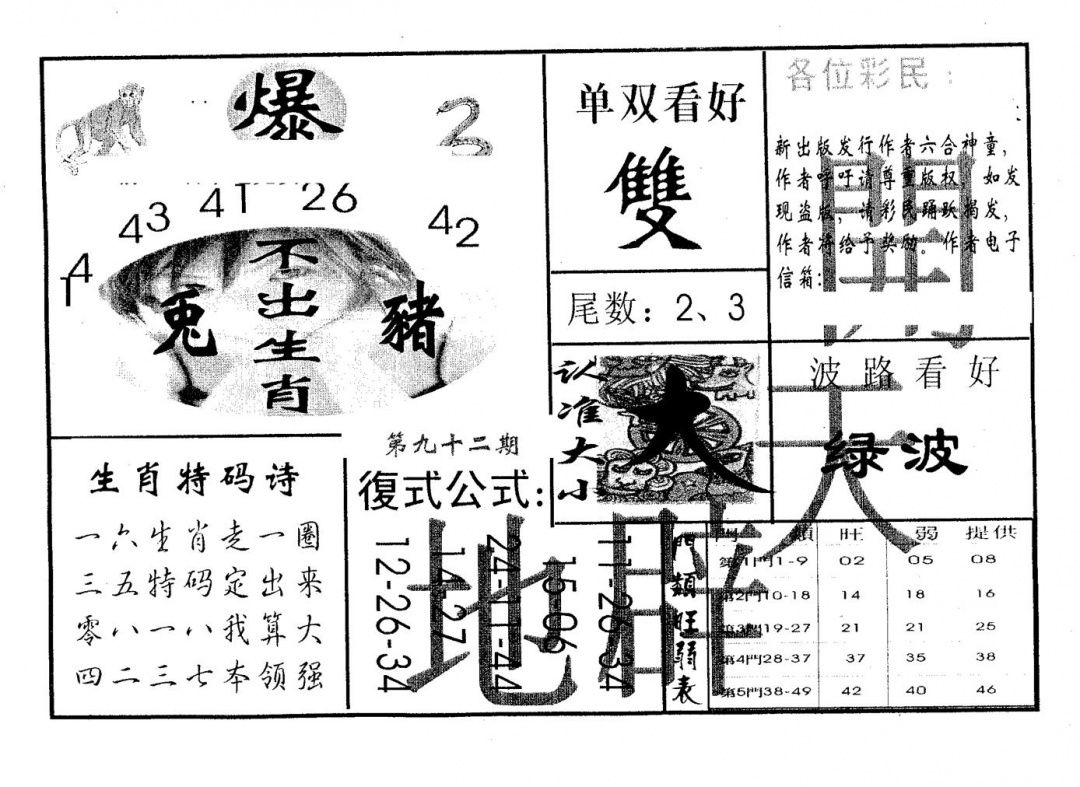 爆
14
43
41
26
42
不出生肖
兔
豬
单双看好
雙
尾数：2、3
认准大小
大
各位彩民：
新出版发行作者六合神童，
作者呼吁请尊重版权，如发
现盗版，请彩民踊跃揭发，
作者将给予奖励。作者电子
信箱：
波路看好
绿波
生肖特码诗
一六生肖走一圈
三五特码定出来
零八一八我算大
四二三七本领强
第九十二期
復式公式：
12-26-34
14-27
24-11-44
15-06
11-26-34
門類旺弱表
門類 旺 弱 提供
第1門1-9 02 05 08
第2門10-18 14 18 16
第3門19-27 21 21 25
第4門28-37 37 35 38
第5門38-49 42 40 46
天
地